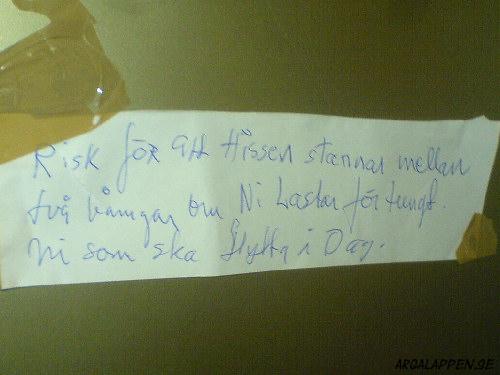 Risk för att Hissen stannar mellan
två våningar om Ni Lastar för tungt.
Ni som ska flytta i Dag.
ARGALAPPEN.SE